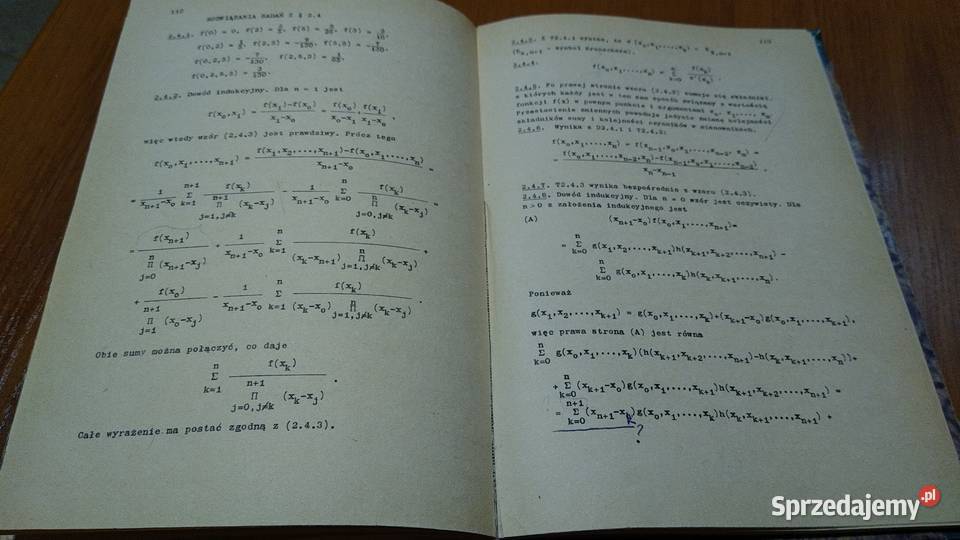 112
ROZWIĄZANIA ZADAŃ Z § 2.4
2.4.1. f(0) = 0, f(2) =
2.4.2. Dowód indukcyjny. Dla n = 1 jest
f(x₀,x₁) = f(x₁)-f(x₀) / x₁-x₀ = f(x₀) / x₀-x₁ + f(x₁) / x₁-x₀ ,
więc wtedy wzór (2.4.3) jest prawdziwy. Prócz tego
f(x₀,x₁,...,xₙ₊₁) = f(x₁,x₂,...,xₙ₊₁)-f(x₀,x₁,...,xₙ) / xₙ₊₁-x₀ =
= 1 / xₙ₊₁-x₀ Σ k=1 n+1 f(xₖ) / Π j=1,j≠k n+1 (xₖ-xⱼ) - 1 / xₙ₊₁-x₀ Σ k=0 n f(xₖ) / Π j=0,j≠k n (xₖ-xⱼ) =
= f(xₙ₊₁) / Π j=0 n (xₙ₊₁-xⱼ) + 1 / xₙ₊₁-x₀ Σ k=1 n f(xₖ) / (xₖ-xₙ₊₁) Π j=1,j≠k n (xₖ-xⱼ) +
+ f(x₀) / Π j=1 n+1 (x₀-xⱼ) - 1 / xₙ₊₁-x₀ Σ k=1 n f(xₖ) / (xₖ-x₀) Π j=1,j≠k n (xₖ-xⱼ) .
Obie sumy można połączyć, co daje
Σ k=1 n f(xₖ) / Π j=0,j≠k n+1 (xₖ-xⱼ) .
Całe wyrażenie ma postać zgodną z (2.4.3).
113
2.4.3. Z T2.4.1 wynika, że
2.4.4.
2.4.5. Po prawej stronie wzoru (2.4.3) sumuje się składniki,
z których każdy jest w ten sam sposób związany z wartością
funkcji f(x) w pewnym punkcie i argumentami x₀, x₁,..., xₙ.
Przestawienie zmiennych powoduje jedynie zmianę kolejności
składników sumy i kolejności czynników w mianownikach.
2.4.6. Wynika z D2.4.1 i T2.4.2:
f(x₀,x₁,...,xₙ) = f(xₙ₋₁,x₀,x₁,...,xₙ₋₂, xₙ) =
= f(x₀,x₁,...,xₙ₋₂,xₙ)-f(xₙ₋₁,x₀,x₁,...,xₙ₋₂) / xₙ-xₙ₋₁ .
2.4.7. T2.4.3 wynika bezpośrednio z wzoru (2.4.3).
2.4.8. Dowód indukcyjny. Dla n = 0 wzór jest oczywisty. Dla
n > 0 z założenia indukcyjnego jest
(A) (xₙ₊₁-x₀)f(x₀,x₁,...,xₙ₊₁)=
= Σ k=0 n g(x₁,x₂,...,xₖ₊₁)h(xₖ₊₁,xₖ₊₂,...,xₙ₊₁) -
Σ k=0 n g(x₀,x₁,...,xₖ)h(xₖ,xₖ₊₁,...,xₙ).
Ponieważ
g(x₁,x₂,...,xₖ₊₁) = g(x₀,x₁,...,xₖ)+(xₖ₊₁-x₀)g(x₀,x₁,...,xₖ₊₁),
więc prawa strona (A) jest równa
Σ k=0 n g(x₀,x₁,...,xₖ)(h(xₖ₊₁,xₖ₊₂,...,xₙ₊₁)-h(xₖ,xₖ₊₁,...,xₙ))+
+ Σ k=0 n (xₖ₊₁-x₀)g(x₀,x₁,...,xₖ₊₁)h(xₖ₊₁,xₖ₊₂,...,xₙ₊₁) =
= Σ k=0 n+1 (xₙ₊₁-xₖ)g(x₀,x₁,...,xₖ)h(xₖ,xₖ₊₁,...,xₙ₊₁) +
?
Sprzedajemy.pl